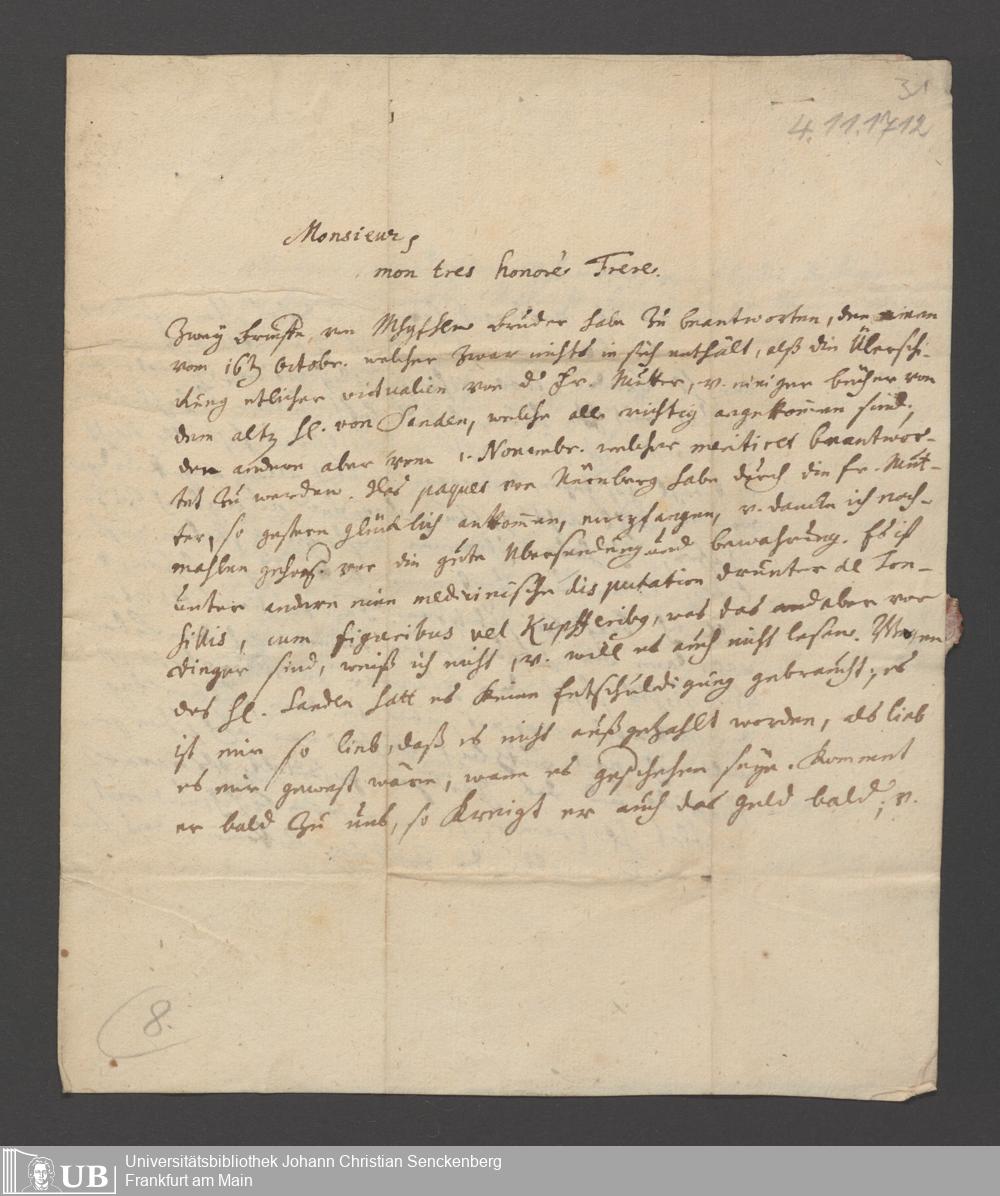 31
4.11.1712
Monsieur,
mon tres honoré Frere.
Zwey briefe von Bruder habe zu beantworten, den einen
vom 16ten Octobr. welcher zwar nichts in sich enthält, alß die Überschi-
ckung etlicher victualien von d. Fr. Mutter, v. einiger bücher von
dem alten H. von Sanden, welche alle richtig angekommen sind,
den andern aber vom 1. Novembr. welcher meritiret beantwor-
tet zu werden. Das paquet von Nürnberg habe durch die Fr. Mut-
ter, so gestern glücklich ankommen, empfangen, v. dancke ich noch-
mahlen gehors. vor die gute Ubersendung und bewahrung. Es ist
unter andern eine medicinische disputation drunter de Ton-
sillis, cum figuribus vel Kupfferibq, was das aber vor
dinger sind, weiß ich nicht, v. will es auch nicht lesen. Wegen
des H. Sanden hatt es keine Entschuldigung gebraucht; es
ist mir so lieb, daß es nicht außgezahlt worden, als lieb
es mir gewest wäre, wann es geschehen seye. Kommet
er bald zu uns, so kreigt er auch das geld bald; v.
8.
UB
Universitätsbibliothek Johann Christian Senckenberg
Frankfurt am Main